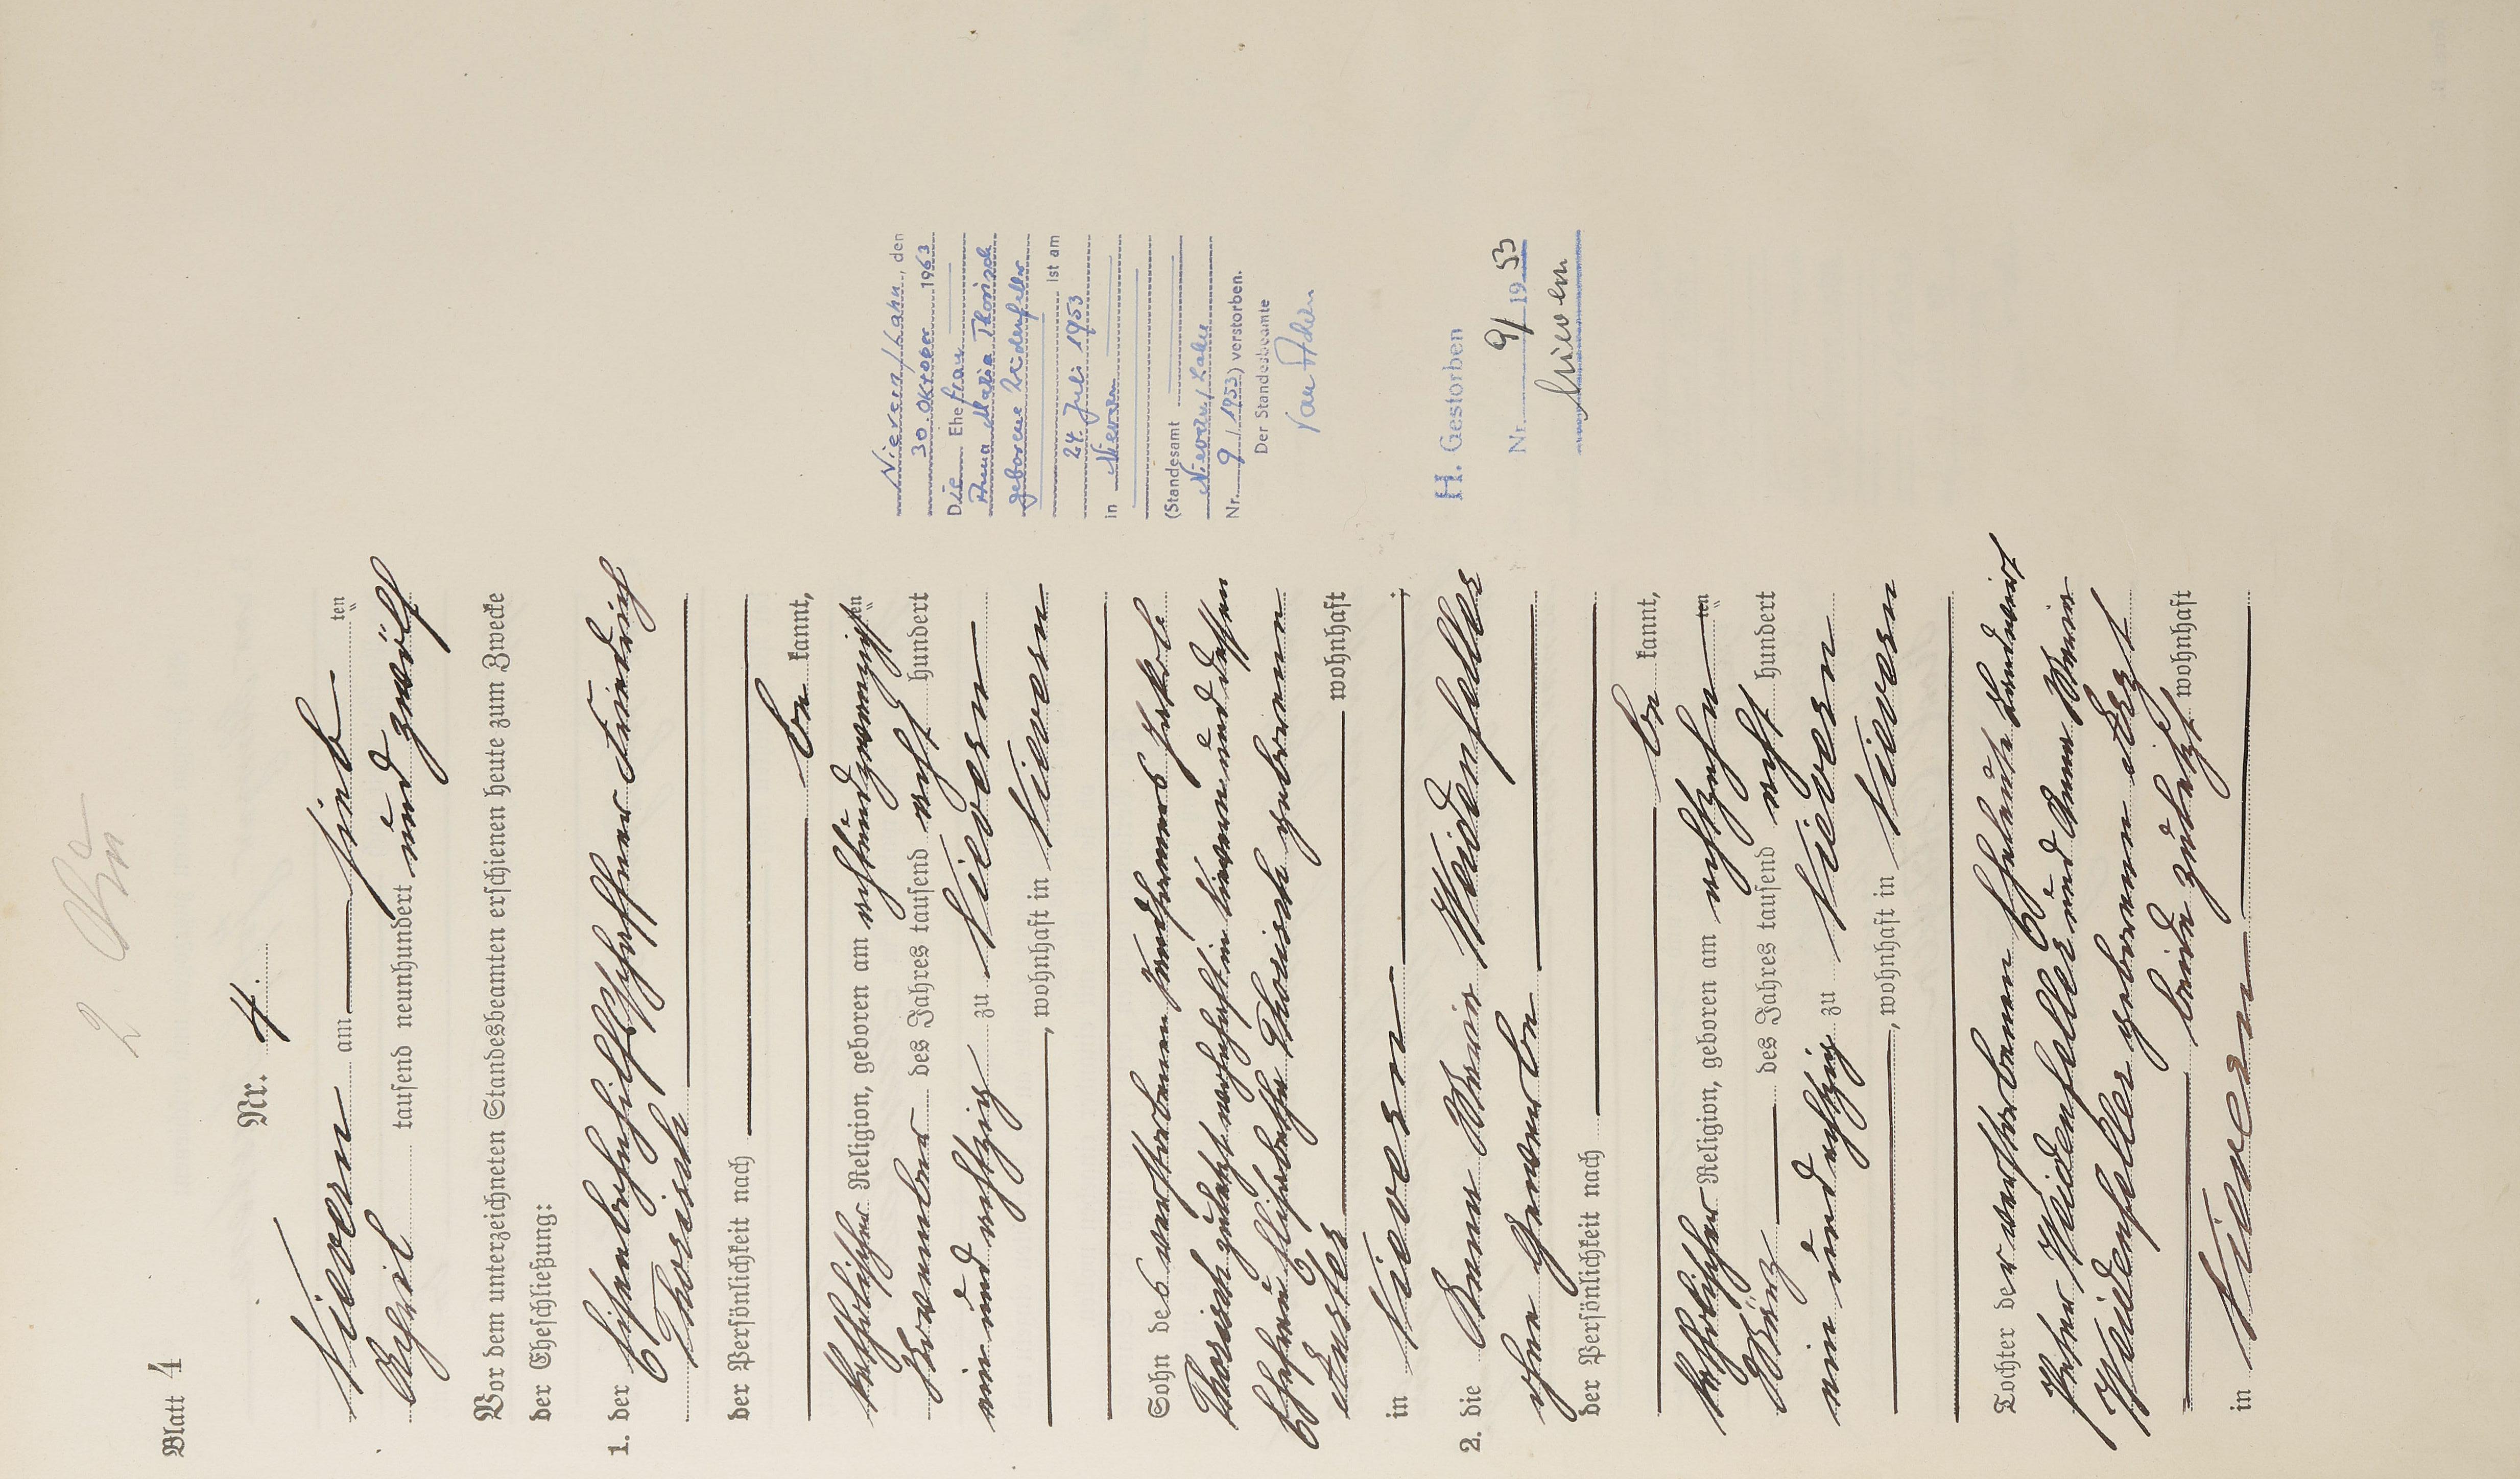 Blatt 4
Nr. 4.
Nievern am fünf ten
April tausend neunhundert und zwölf
Vor dem unterzeichneten Standesbeamten erschienen heute zum Zwecke
der Eheschließung:
1. der Eisenbahnhilfsschaffner Friedrich
Thorisch
der Persönlichkeit nach
be kannt,
katholischer Religion, geboren am achtundzwanzigsten
November des Jahres tausend acht hundert
ein und achtzig zu Nievern
, wohnhaft in Nievern
Sohn des verstorbenen Handlanger Jakob
Thorisch zuletzt wohnhaft in Nievern und dessen
Ehefrau Elisabetha Thorisch geborenen
wohnhaft
in Nievern ;
2. die Anna Maria Weidenfeller
ohne Gewerbe
der Persönlichkeit nach
be kannt,
katholischer Religion, geboren am achtzehn ten
März des Jahres tausend acht hundert
ein und achtzig zu Nievern
, wohnhaft in Nievern
Tochter der verstorbenen Eheleute Landwirt
Peter Weidenfeller und Anna Maria
Weidenfeller geborenen
beide zuletzt wohnhaft
in Nievern
Nievern/Lahn, den
30. Oktober 1963
Die Ehefrau
Anna Maria Thorisch
geborene Weidenfeller
ist am
24. Juli 1953
in Nievern
(Standesamt
Nievern/Lahn
Nr. 9/1953) verstorben.
Der Standesbeamte
H. Gestorben
Nr. 9/1953
Nievern